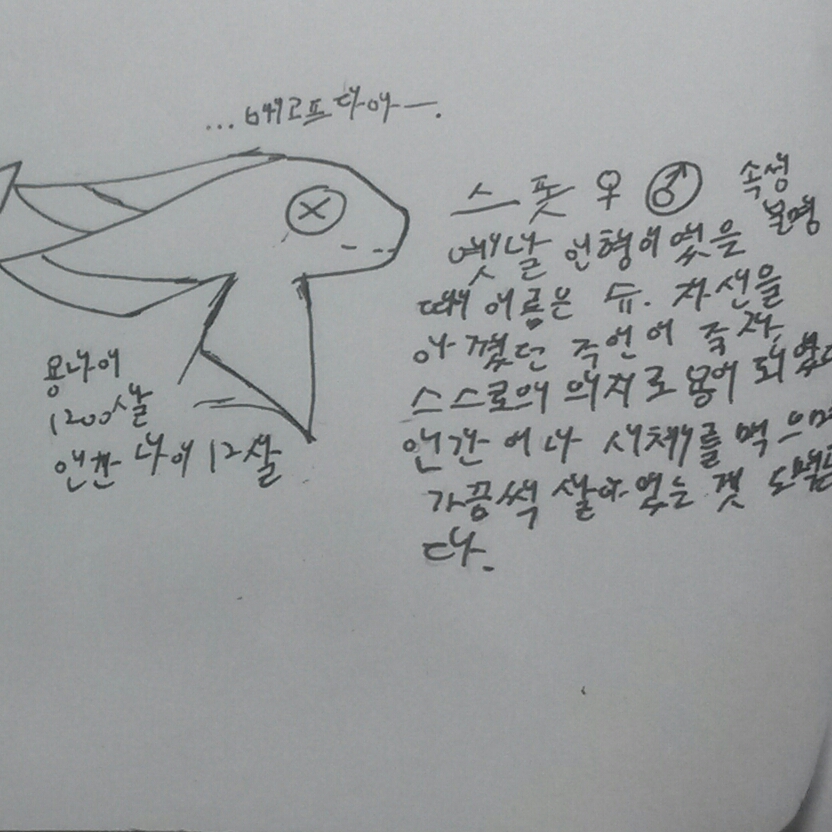 ...배고프다아ㅡ.
스폿 ♀ ♂ 속성
불명
옛날 인형이였을
때 이름은 슈. 자신을
아꼈던 주인이 죽자,
스스로의 의지로 용이 되였
인간 이나 시체를 먹으며
가끔씩 살아 있는 것
다.
용나이
1200살
인간 나이 12살